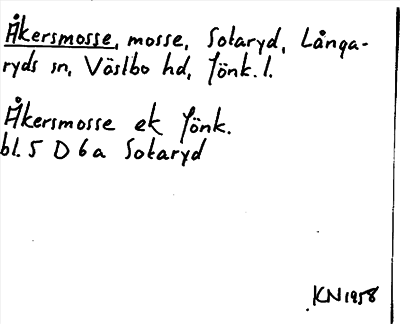 Åkersmosse, mosse, Sotaryd, Långa-
ryds sn, Västbo hd, Jönk. l.
Åkersmosse ek Jönk.
bl. 5 D 6 a Sotaryd
KN 1958